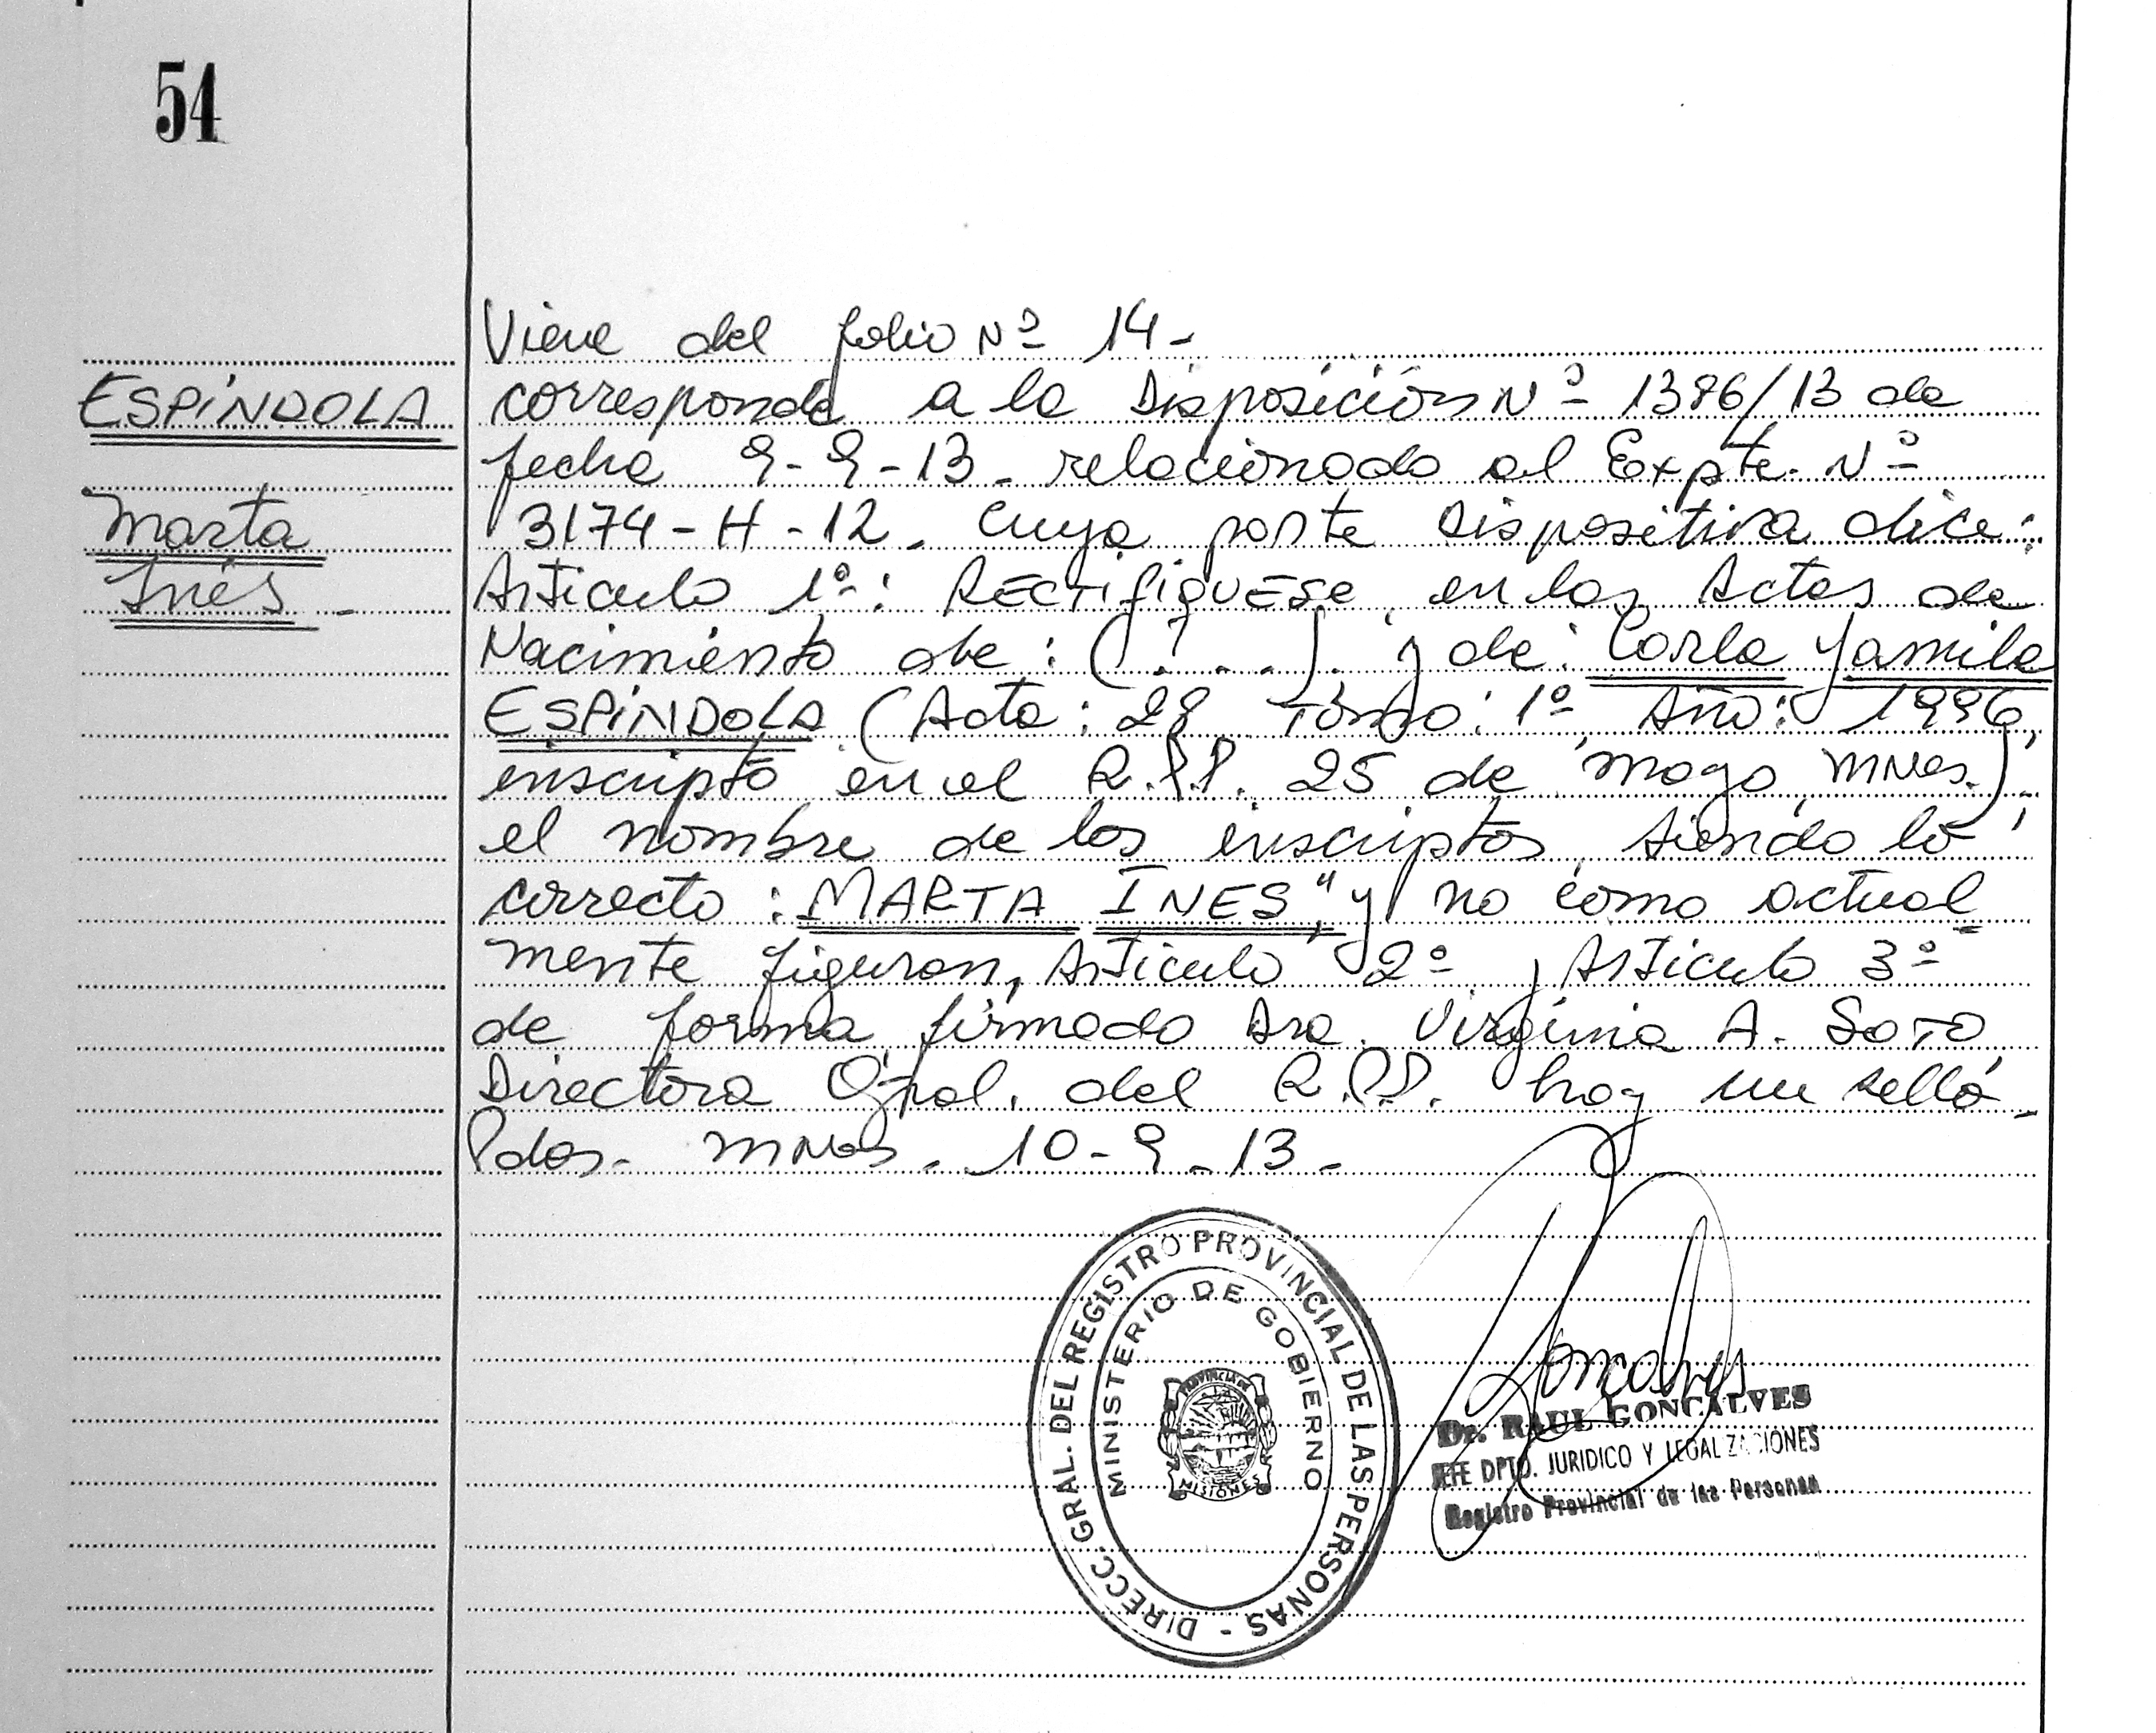 54
ESPÍNDOLA
Marta
Inés -
Viene del folio Nº 14 -
corresponde a la Disposición Nº 1386/13 de
fecha 9-9-13 - relacionado al Expte. Nº
3174-H-12. Cuya parte dispositiva dice:
Articulo 1º: RECTIFIQUESE, en las Actas de
Nacimiento de: (....). y de: Carla Yamila
ESPÍNDOLA (Acta: 28, Tomo: 1º, Año: 1996,
inscripto en el R.P.P. 25 de mayo, MNes.),
el nombre de los inscriptos, siendo lo
correcto: MARTA INES", y no como actual
mente figuran, Articulo 2º y Articulo 3º
de forma firmado Dra. Virginia A. SOTO,
Directora Gral. del R.P.P. hay un sello -
Pdas. MNes. 10-9-13 -
DIRECC. GRAL. DEL REGISTRO PROVINCIAL DE LAS PERSONAS -
MINISTERIO DE GOBIERNO
PROVINCIA DE
MISIONES
Dr. RAUL GONCALVES
JEFE DPTO. JURIDICO Y LEGALIZACIONES
Registro Provincial de las Personas